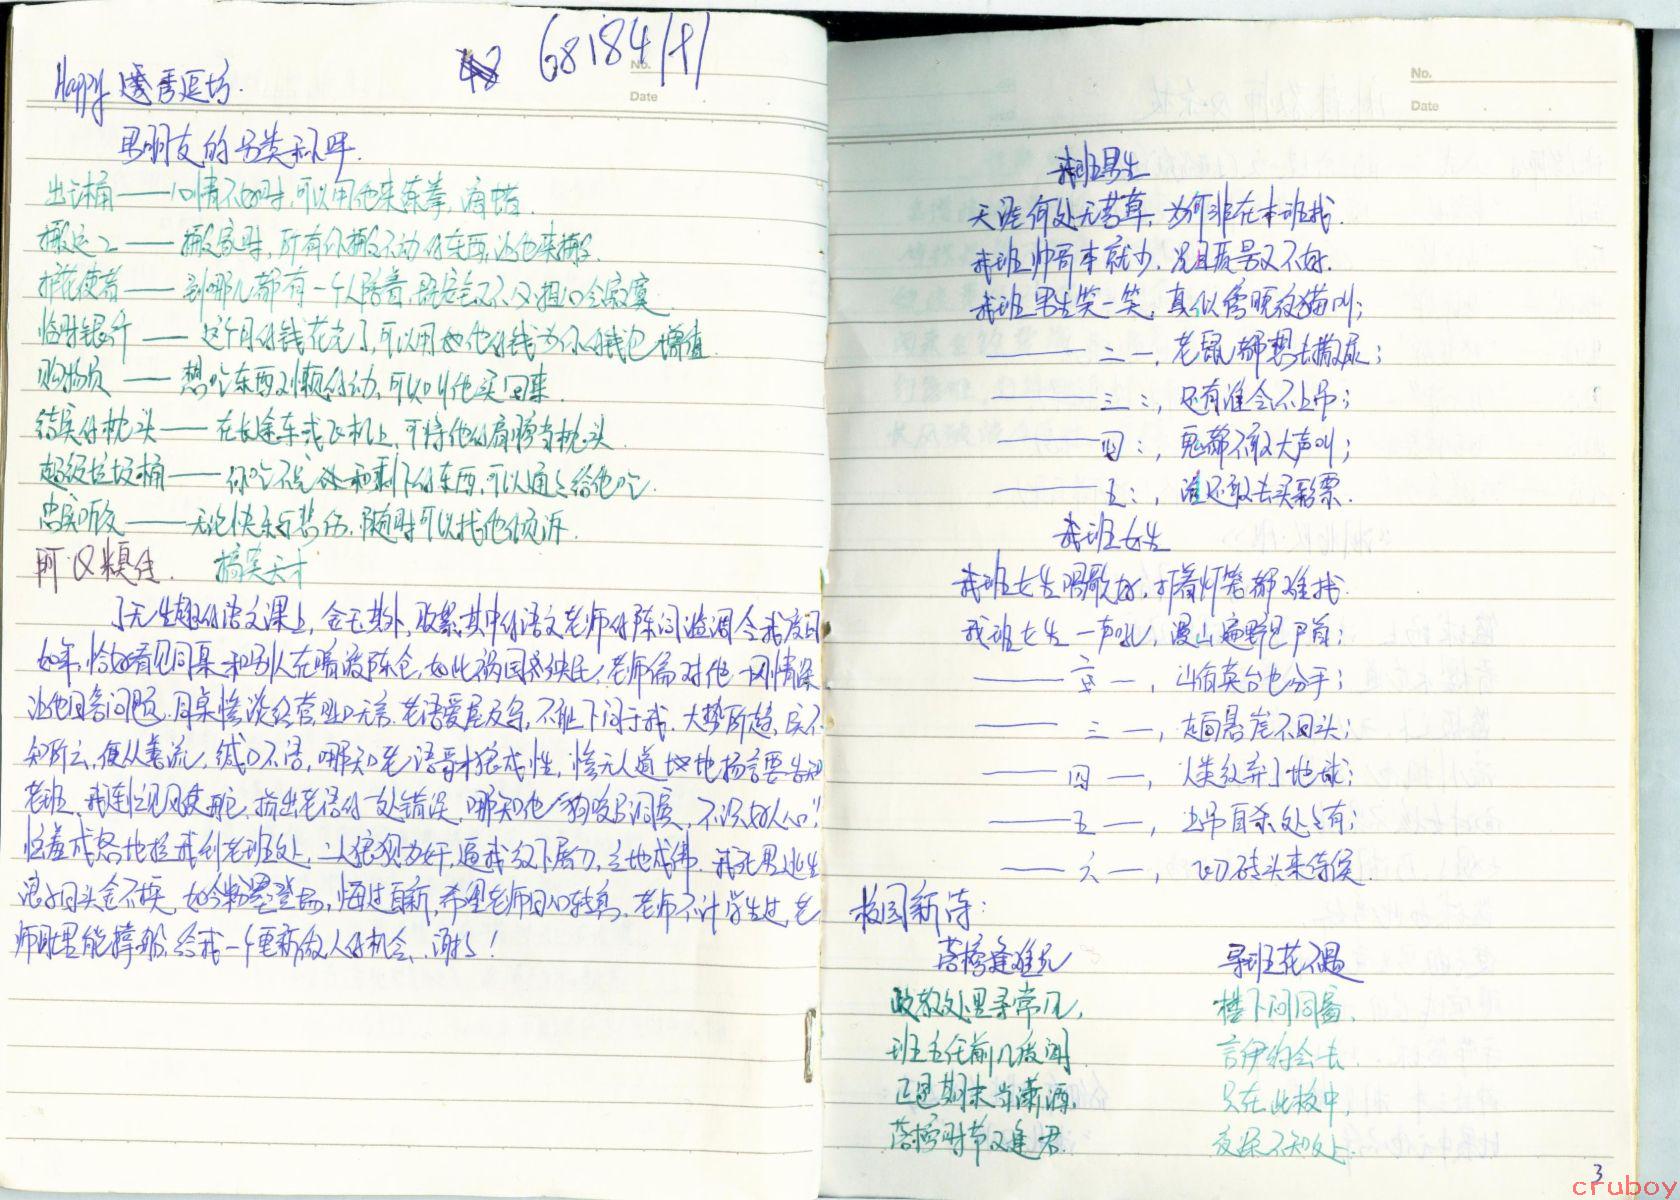 68184
No.
Date
男朋友的另类称呼
出气桶——心情不好时,可以用他来练拳,
搬运工——搬家时,所有你搬不动的东西,让他来搬.
护花使者——到哪儿都有一个人陪着,既安全又不必担心会寂寞
临时银行——这个月的钱花光了,可以用他的钱为你的钱包增值
购物员——想吃东西又懒得动,可以叫他买回来.
结实的枕头——在长途车或飞机上,可将他的肩膀当枕头.
超级垃圾桶——你吃不完和剩下的东西,可以通通给他吃.
忠实听众——无论快乐与悲伤,随时可以找他倾诉.
搞笑天才
了无生趣的语文课上,金玉其外,败絮其中的语文老师的陈词滥调令我度日
如年,恰好看见同桌和别人在暗渡陈仓,如此祸国殃民,老师偏对他一网情深
让他回答问题.同桌惨淡经营哑口无言.老语爱屋及乌,不耻下问于我.大势所趋,实不
知所云,便从善如流,缄口不语,哪知老语豺狼成性,惨无人道地扬言要告知
老班.我连忙见风使舵,指出老语的一处错误,哪知他“狗咬吕洞宾,不识好人心”!
恼羞成怒地拉我到老班处,二人狼狈为奸,逼我放下屠刀,立地成佛.我死里逃生
浪子回头金不换,如今粉墨登场,悔过自新,希望老师回心转意.老师不计学生过,老
师肚里能撑船,给我一个重新做人的机会.谢谢!
No.
Date
我班男生
天涯何处无芳草,为何非在本班找.
我班帅哥本就少,况且质量又不好.
我班男生笑一笑,真似傍晚夜猫叫;
——二—,老鼠都想去撒尿;
——三:,还有谁会不上吊;
——四:,鬼都不敢大声叫;
——五:,谁还敢去买彩票.
我班女生
我班女生唱歌好,打着灯笼都难找.
我班女生一声吼,漫山遍野见尸首;
——二—,山伯英台也分手;
——三—,走向悬崖不回头;
——四—,人类放弃了地球;
——五—,上吊自杀处处有;
——六—,飞砖头来侍候.
校园新诗:
落榜逢难兄 寻班花不遇
政教处里寻常见, 楼下问同窗,
班主任前几度闻. 言伊约会去.
正是期末当潇洒, 只在此校中,
落榜时节又逢君. 夜深不知处.
3
cruboy